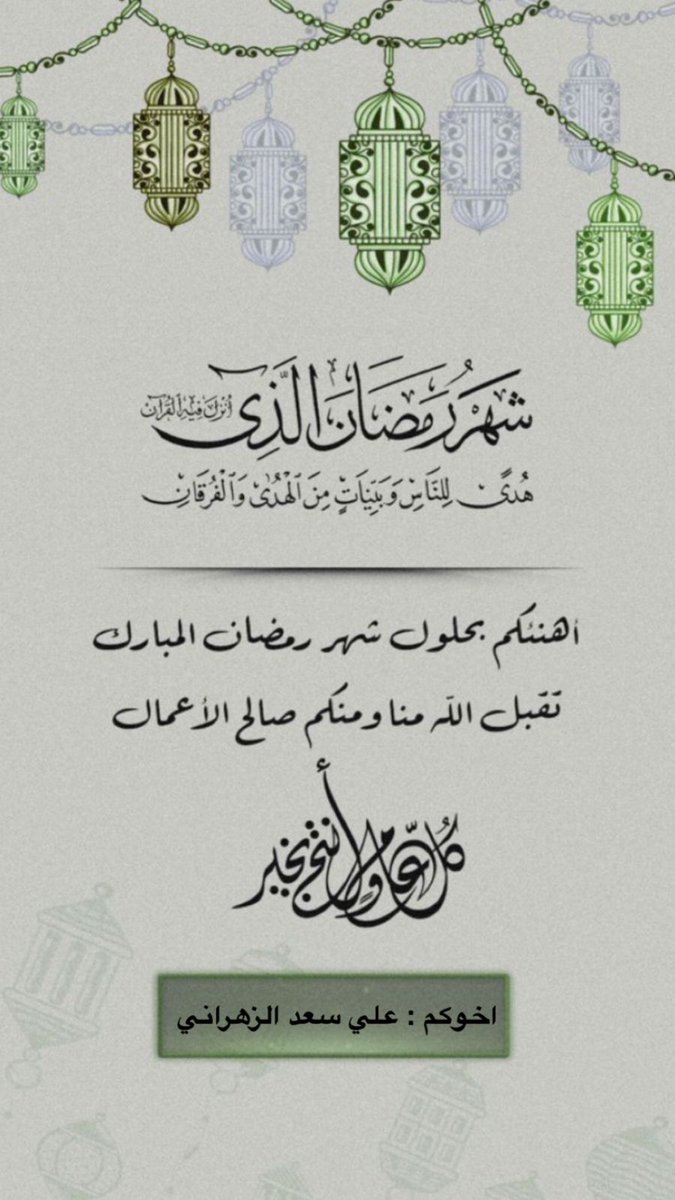 شَهْرُ رَمَضَانَ الَّذِي أُنْزِلَ فِيهِ الْقُرْآنُ
هُدًى لِلنَّاسِ وَبَيِّنَاتٍ مِنَ ٱلْهُدَىٰ وَٱلْفُرْقَانِ
أهنئكم بحلول شهر رمضان المبارك
تقبل الله منا ومنكم صالح الأعمال
كل عام وأنتم بخير
اخوكم : علي سعد الزهراني